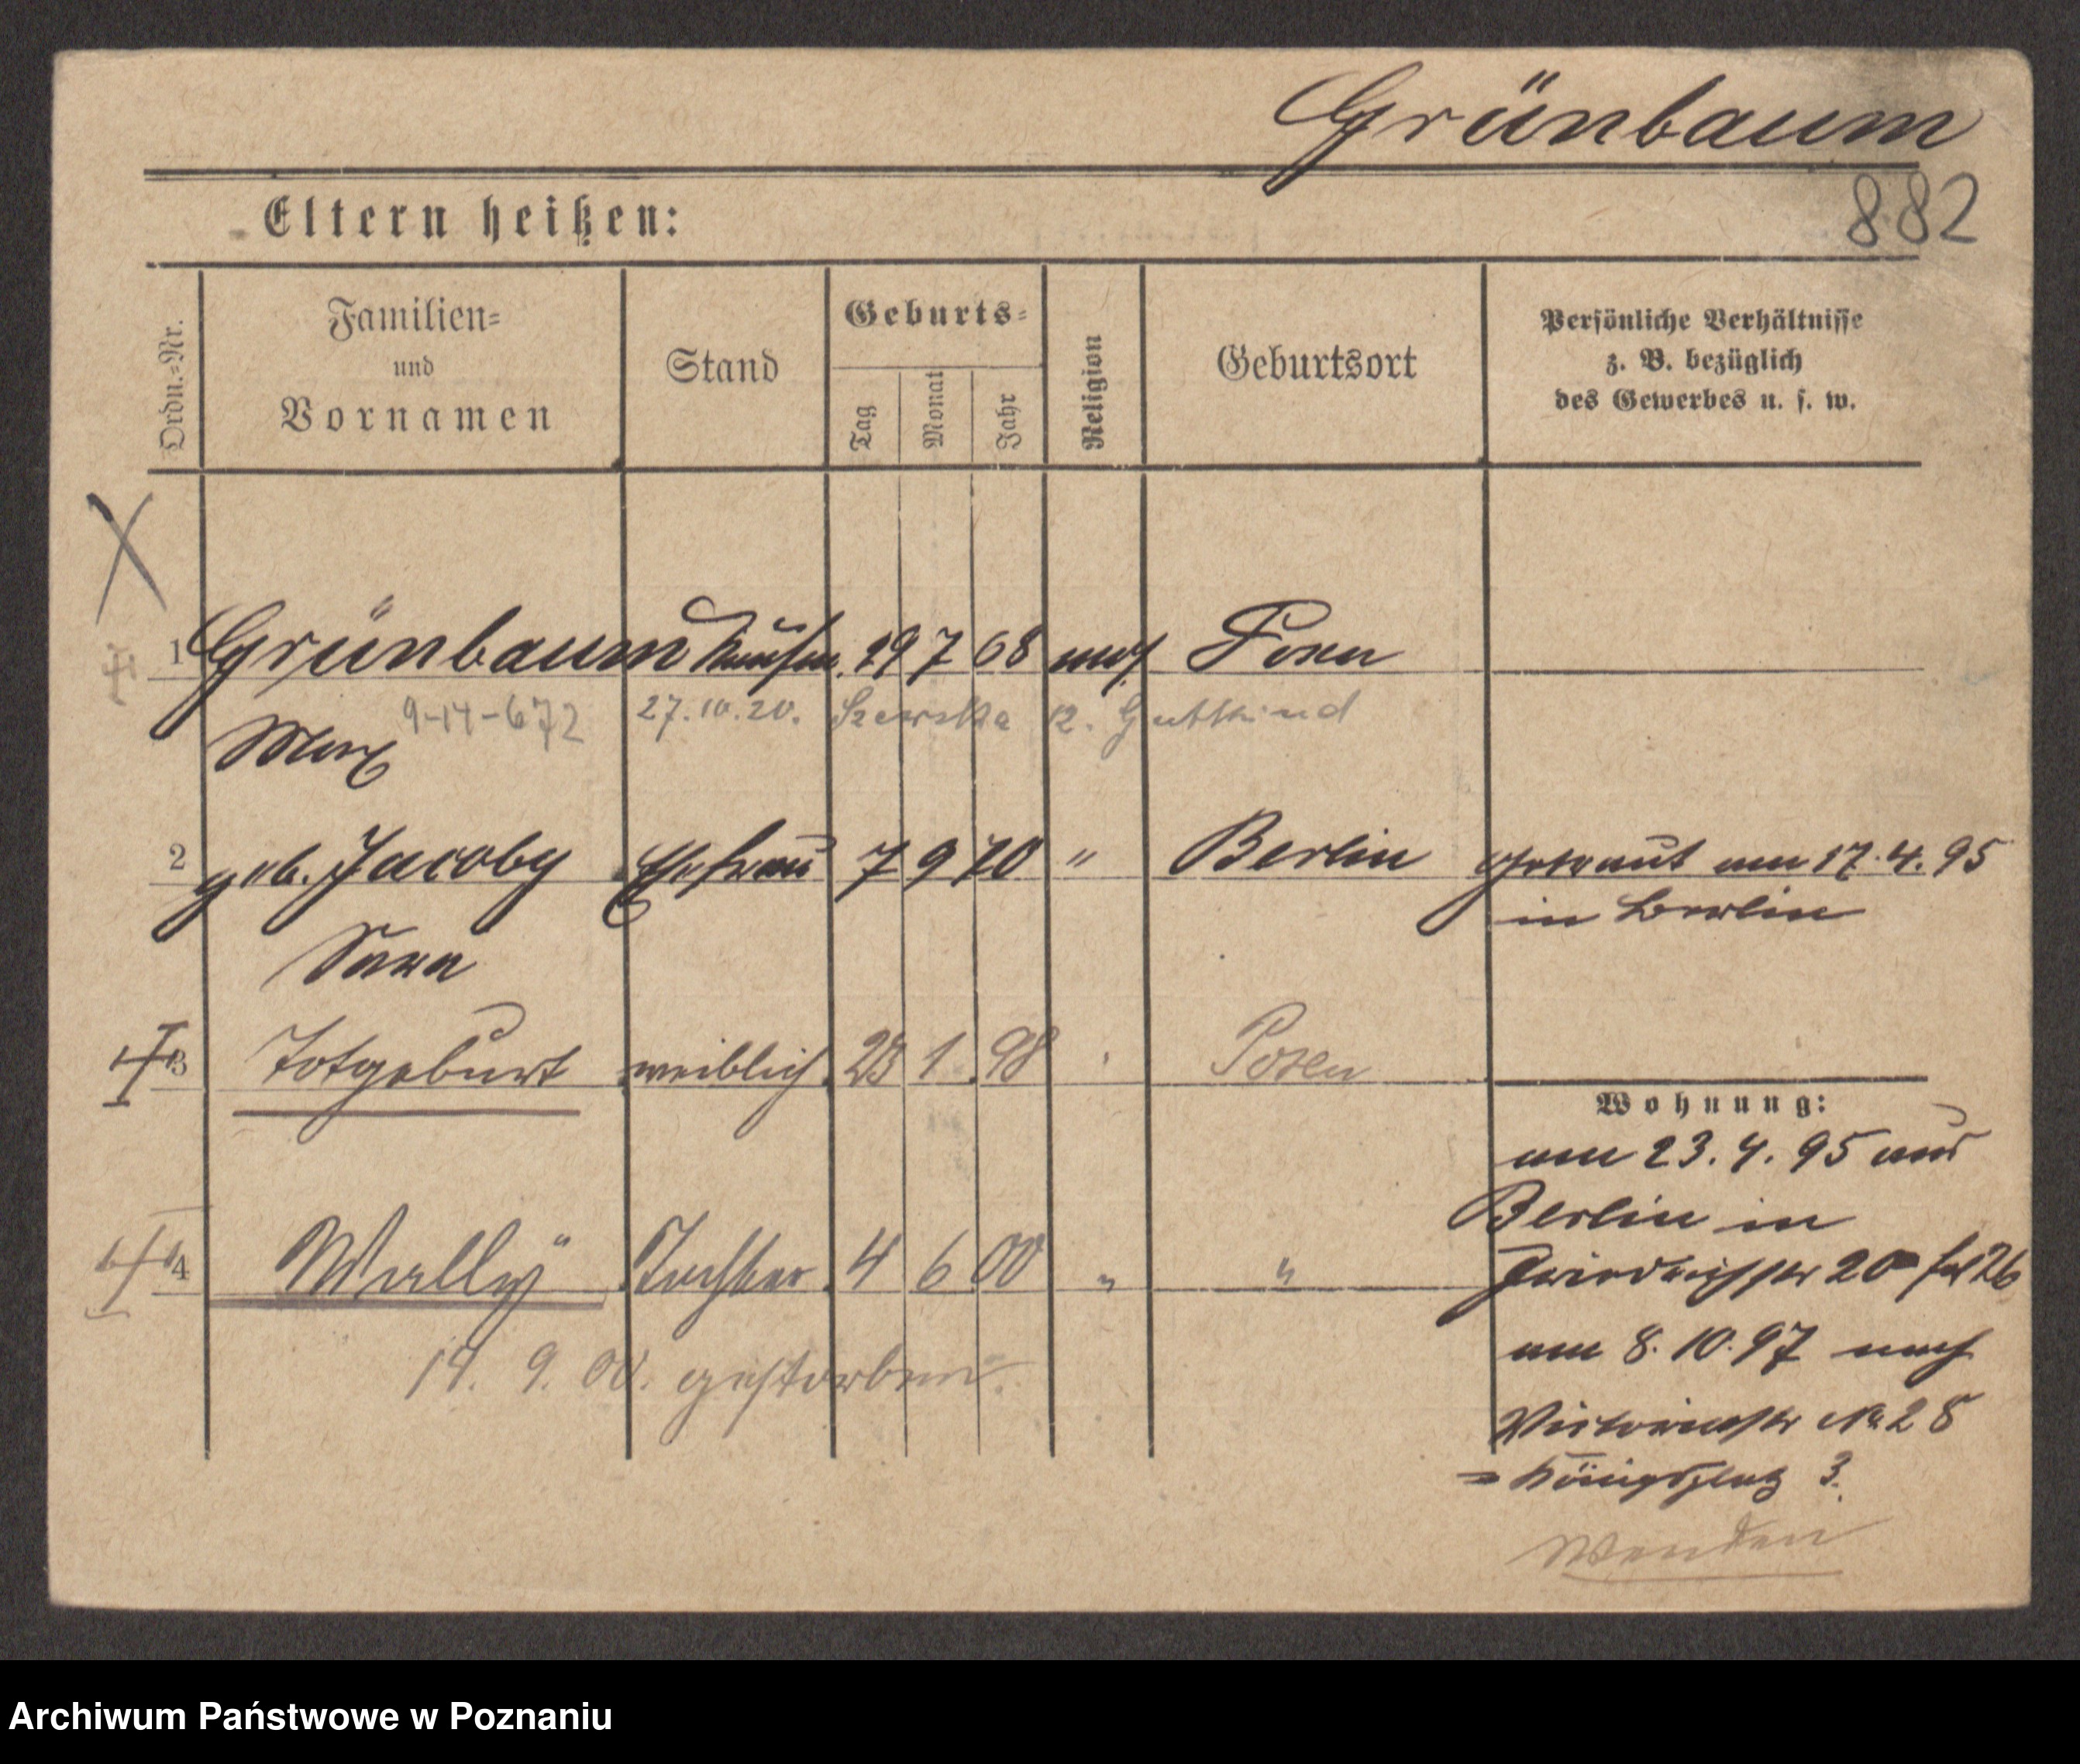 Grünbaum
882
Eltern heißen:
Ordn.=Nr.
Familien=
und
Vornamen
Stand
Geburts=
Tag
Monat
Jahr
Religion
Geburtsort
Persönliche Verhältnisse
z. B. bezüglich
des Gewerbes u. s. w.
1 Grünbaum Kaufm. 29 7 68 mos Posen
9-14-672 27.10.20. Szewska 12. Guttkind
Max
2 geb. Jacoby Ehefrau 7 9 70 " Berlin getraut am 17.4.95
in Berlin
Sara
3 Totgeburt weiblich 23 1 98 Posen
Wohnung:
am 23.4.95 aus
Berlin in
4 Wally Tochter 4 6 00 " " Friedrichstr 20
19. 9. 00. gestorben.
am 8.10.97 nach
Victoriastr No 28
= Königsplatz 3.
Wenden
Archiwum Państwowe w Poznaniu